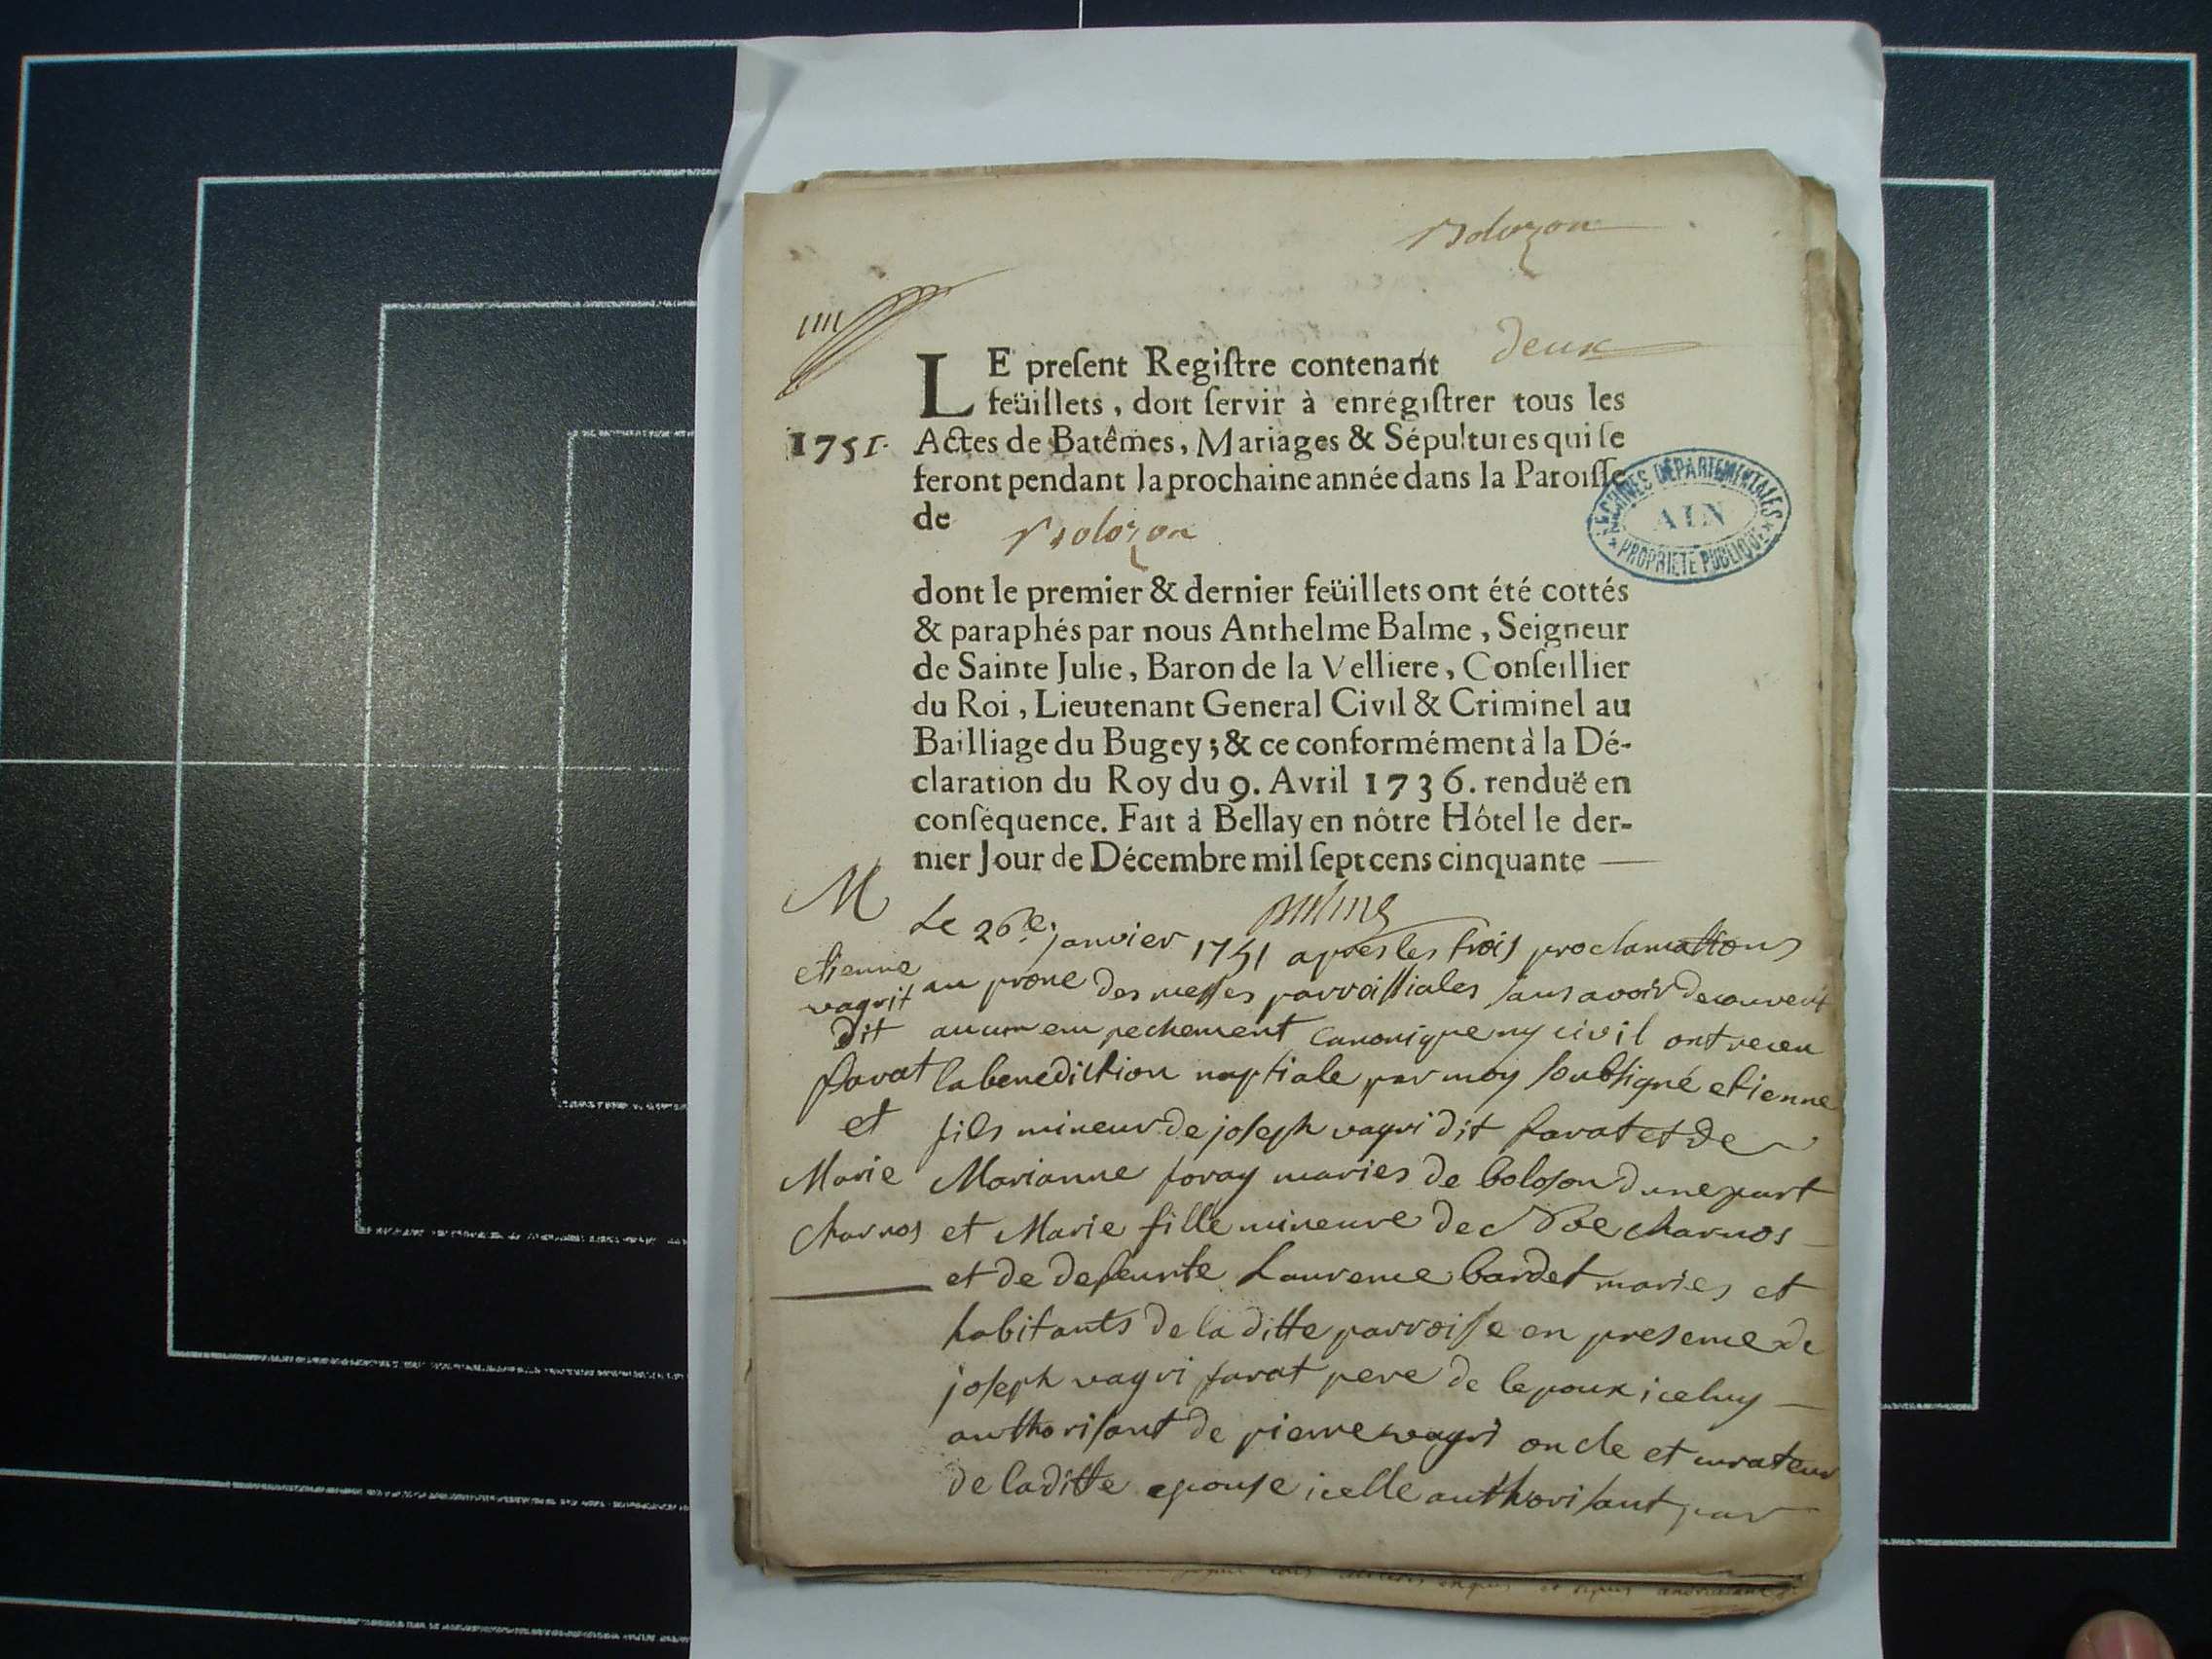 Bolozon
LE preſent Regiſtre contenant deux
feüillets, doit ſervir à enrégiſtrer tous les
1751. Actes de Batêmes, Mariages & Sépultures qui ſe
feront pendant la prochaine année dans la Paroiſſe
de Bolozon
ARCHIVES DÉPARTEMENTALES
AIN
PROPRIÉTÉ PUBLIQUE
dont le premier & dernier feüillets ont été cottés
& paraphés par nous Anthelme Balme, Seigneur
de Sainte Julie, Baron de la Velliere, Conſeillier
du Roi, Lieutenant General Civil & Criminel au
Bailliage du Bugey; & ce conformément à la Dé-
claration du Roy du 9. Avril 1736. renduë en
conſéquence. Fait à Bellay en nôtre Hôtel le der-
nier Jour de Décembre mil ſept cens cinquante
M
etienne
vagrit
dit
favat
et
Marie
charnos
Le 26e. janvier 1751 apres les trois proclamations
au prone des messes parroissiales sans avoir decouvert
aucun empechement canonique ny civil ont receu
la benediction nuptiale par moy soubsigné etienne
fils mineur de joseph vagri dit favat et de
Marianne foray maries de boloson dune part
et Marie fille mineure de Noe charnos
et de defeunte Laurence bardet maries et
habitants de la ditte parroisse en presence de
joseph vagri favat pere de lepoux iceluy
authorisant de pierre vagri oncle et curateur
de laditte epouse icelle authorisant par